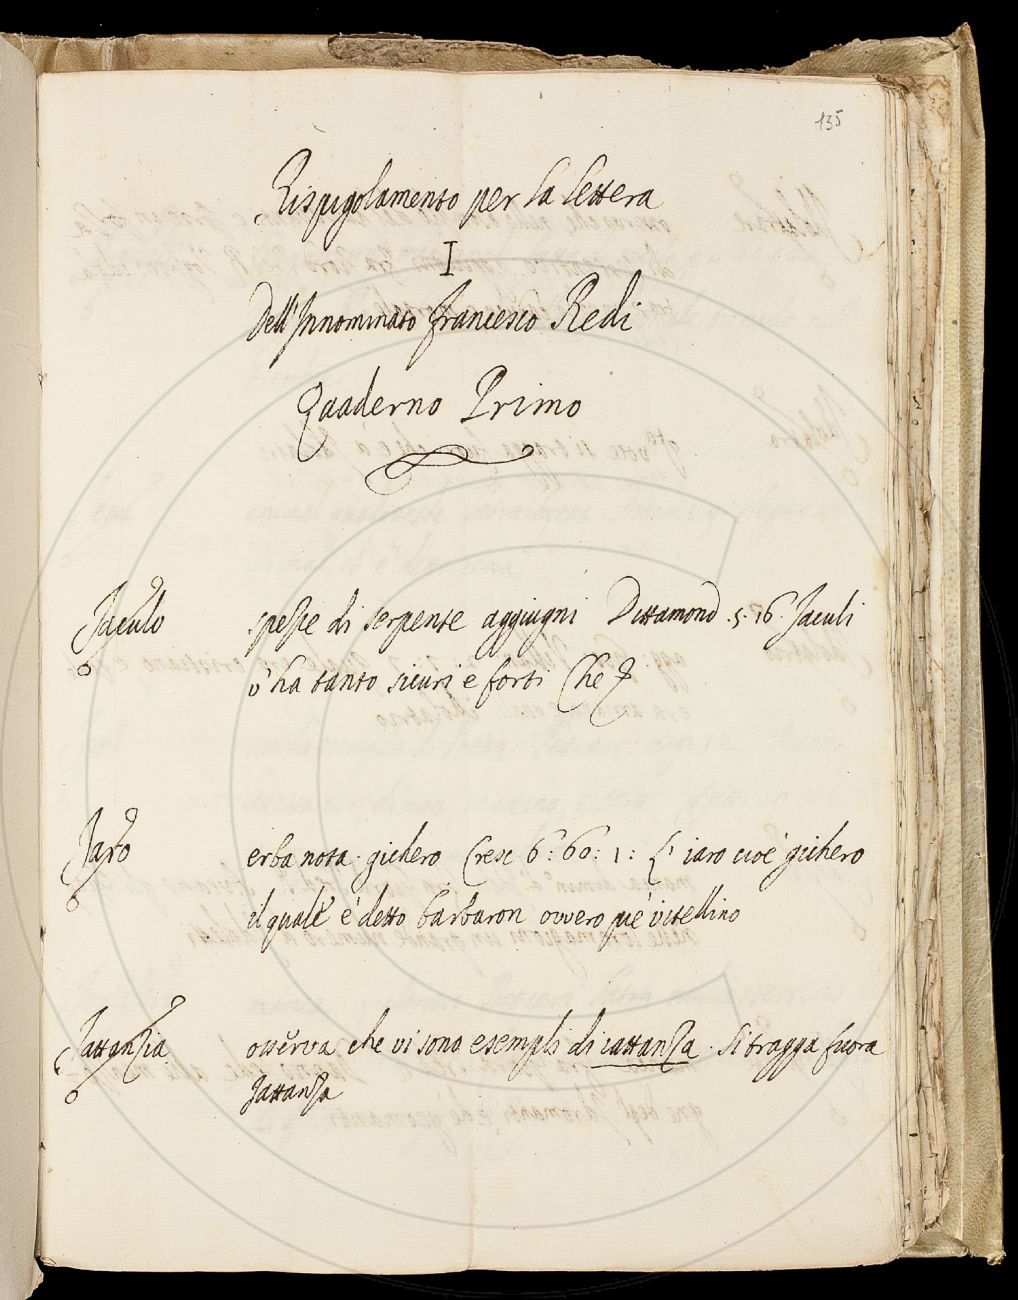 135
Rispigolamento per la lettera
I
Dell'Innominato Francesco Redi
Quaderno Primo
Jaculo spezie di serpente aggiugni Dittamond. 5. 16. Jaculi
v'ha tanto sicuri e forti Che
Jaro erba nota. gichero Cresc 6: 60: 1: L' iaro cioè gichero
il quale è detto barbaron ovvero piè vitellino
Jattanzia osserva che vi sono esempli di iattanza. Si tragga fuora
Jattanza